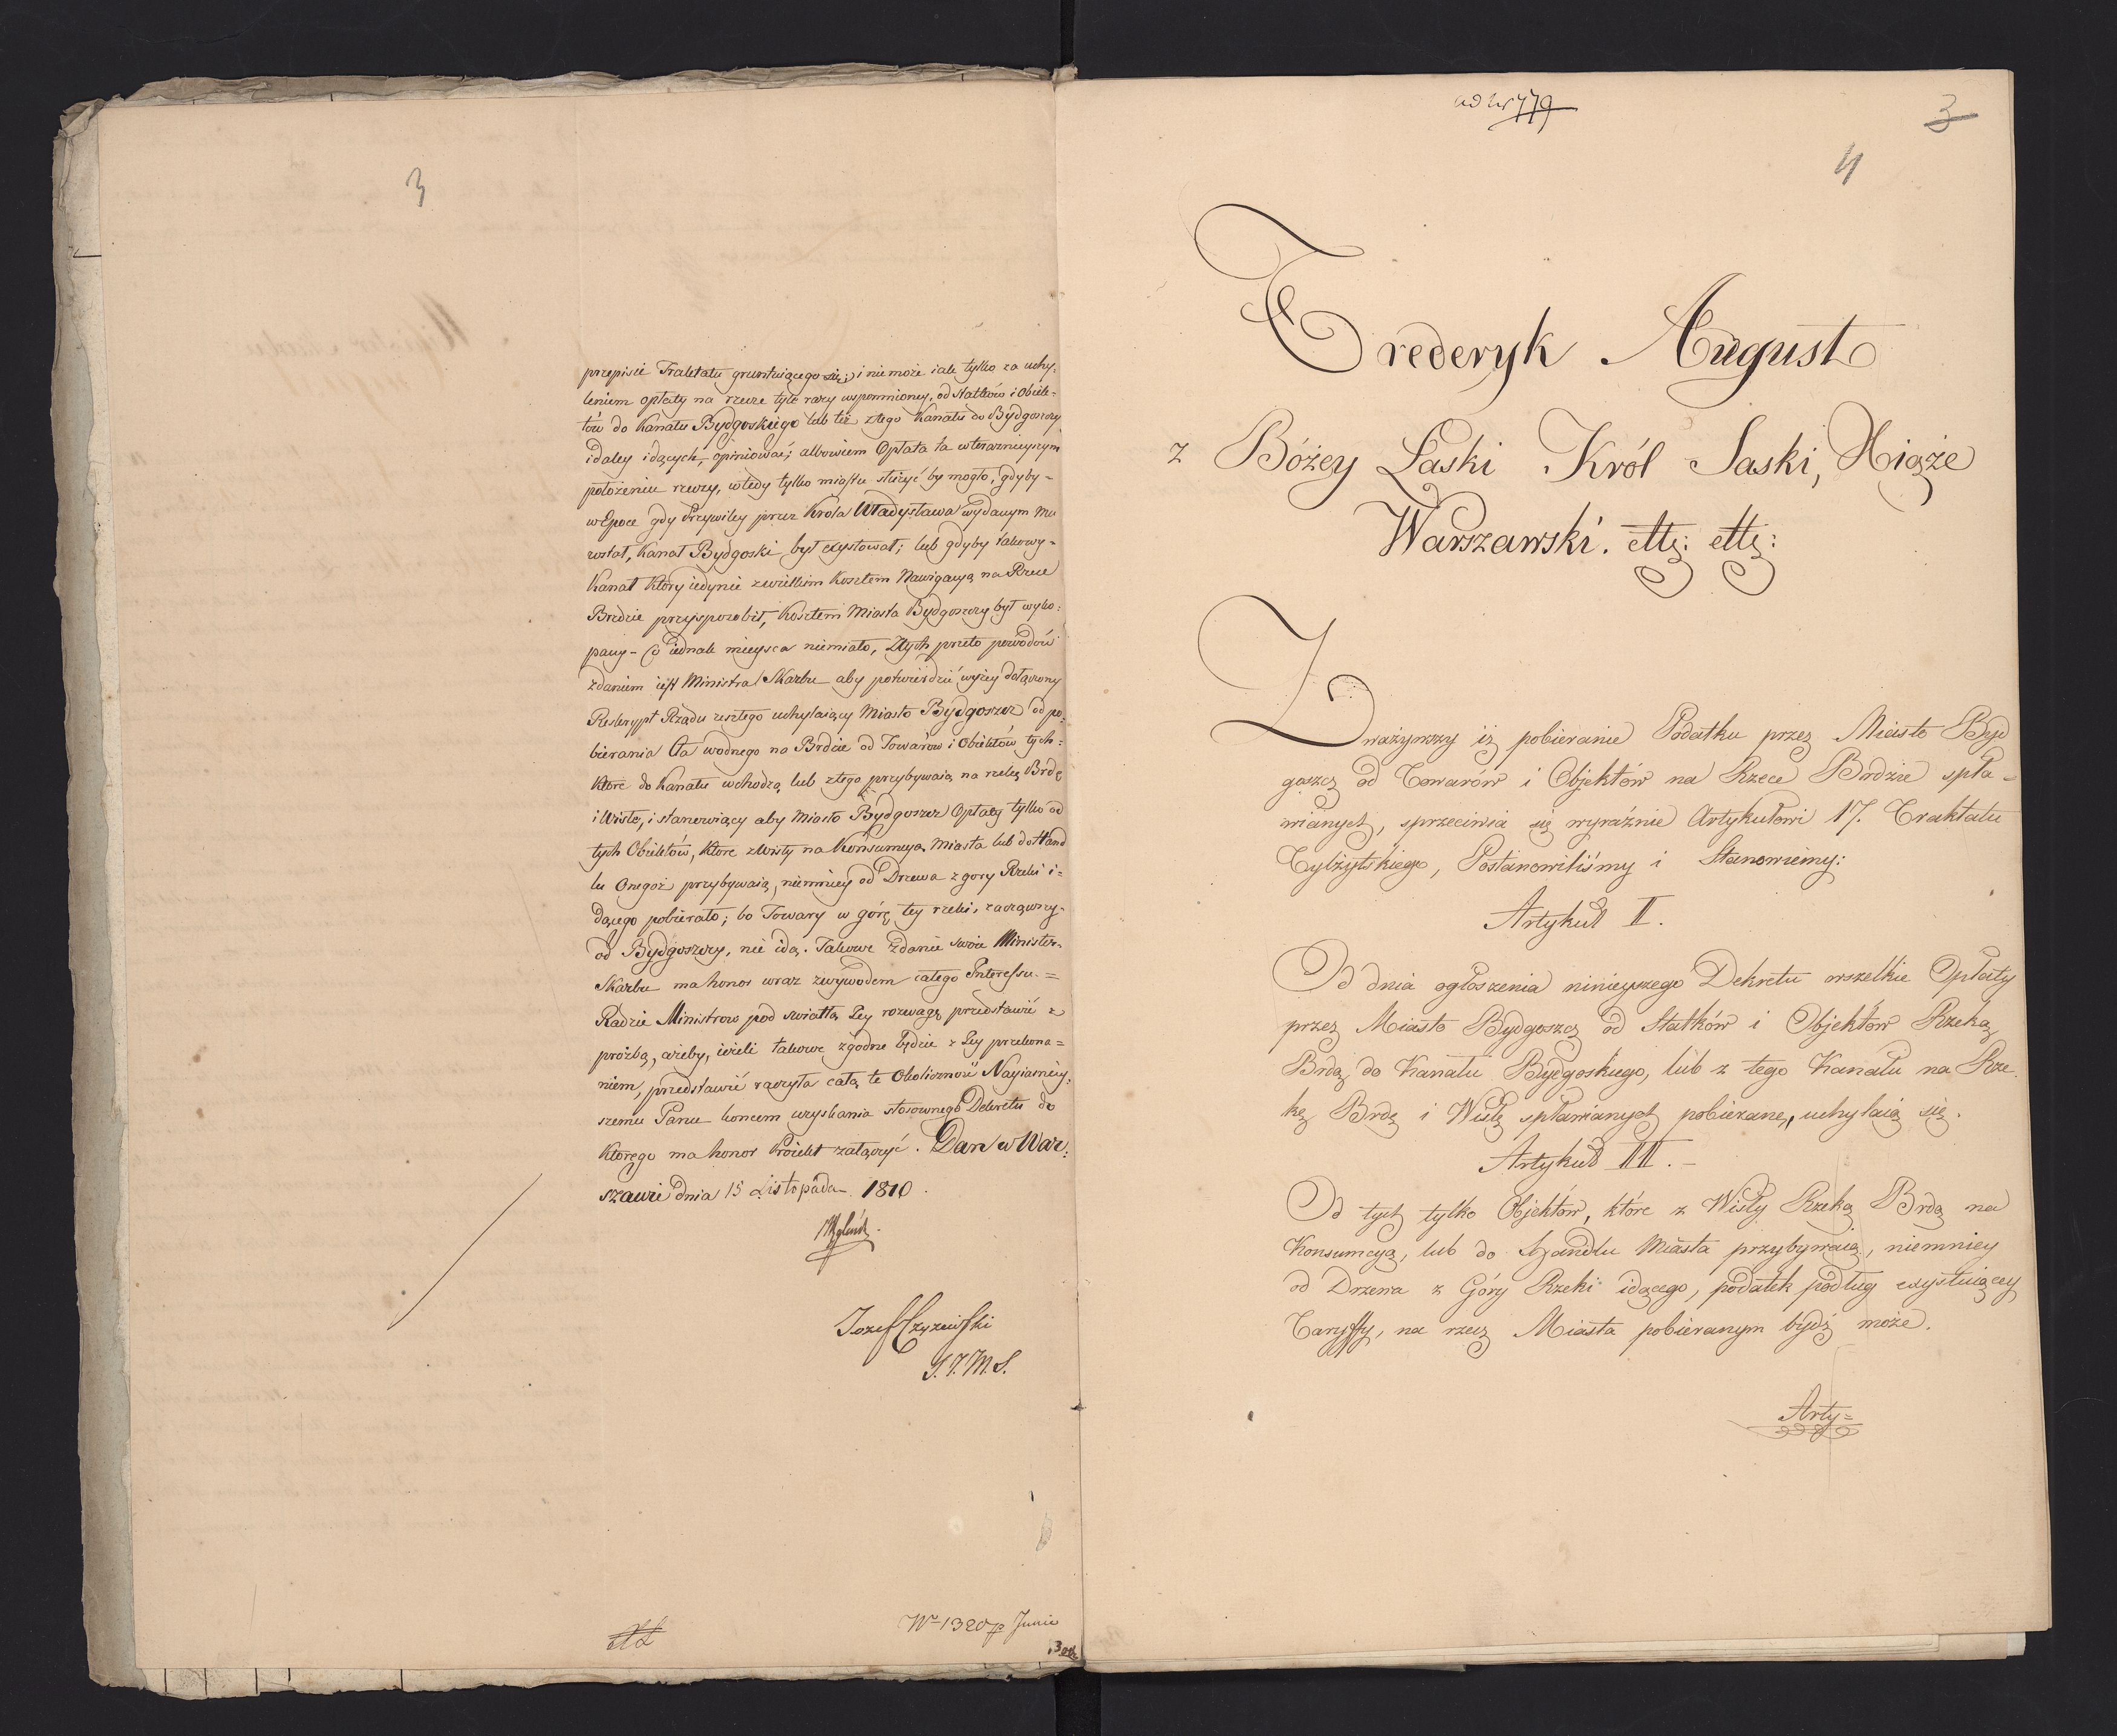 3
przepisie Traktatu gruntuiącego się; i nie może iak tylko za uchy-
leniem opłaty na rzecze tyle razy wspomnioney, od Statków i Obiek-
tów do Kanału Bydgoskiego lub też z tego Kanału do Bydgoszczy
i daley idących, opiniować; albowiem Opłata ta w teraznieyszym
położeniu rzeczy, wtedy tylko miastu służyć by mogła, gdyby-
w Epoce gdy Przywiley przez Krola Władysława wydanym mu
został, Kanał Bydgoski był exystował; lub gdyby takowy-
Kanał który iedynie z wielkim kosztem Nawigacyą na Rzece
Brdzie przysposobił, kosztem Miasta Bydgoszczy był wyko:
pany - Co iednak mieysca niemiało, Z tych przeto powodów
zdaniem iest Ministra Skarbu aby potwierdzić wyżey dołączony
Reskrypt Rządu zeszłego uchylaiący Miasto Bydgoszcz od po:
bierania Cła wodnego na Brdzie od Towarów i Obiektów tych:
które do Kanału wchodzą lub z tego przybywaią na rzekę Brdę
i Wisłę, i stanowiący aby Miasto Bydgoszcz Opłatę tylko od
tych Obiektów, które z Wisły na Konsumcyą Miasta lub do Hand
lu Onegoż przybywaią, niemniey od Drzewa z gory Rzeki i=
dącego pobierało; bo Towary w górę tey rzeki, zacząwszy-
od Bydgoszczy, nie idą. Takowe zdanie swoie Minister-
Skarbu ma honor wraz z wywodem całego Interessu =
Radzie Ministrow pod swiatłą Jey rozwagę przedstawić z
prożbą, ażeby, ieżeli takowe zgodne będzie z Jey przekona=
niem, przedstawić raczyła całą tę Okoliczność Nayiaśniey:
szemu Panu końcem uzyskania stosownego Dekretu do
którego ma honor Proiekt załączyć. Dan w War:
szawie dnia 15 Listopada 1810.
Jozef Czyzewski
S. J. M. S.
Nro 1320
ad Nr 779
3
4
Frederyk August
z Bóżey Łaski Król Saski, Xiąże
Warszawski. ettc: ettc:
Zważywszy iż pobieranie Podatku przez Miasto Byd
goszcz od Towarów i Objektów na Rzece Brdzie spła-
wianych, sprzeciwia się wyraźnie Artykułowi 17. Traktatu
Tylżytskiego, Postanowiliśmy i Stanowiemy:
Artykuł I.
Od dnia ogłoszenia ninieyszego Dekretu wszelkie Opłaty
przez Miasto Bydgoszcz od Statków i Objektów Rzeką
Brdą do Kanału Bydgoskiego, lub z tego Kanału na Rze
kę Brdę i Wisłę spławianych pobierane, uchylaią się.
Artykuł II. -
Od tych tylko Objektów, które z Wisły Rzeką Brdą na
Konsumcyą, lub do Handlu Miasta przybywaią, niemniey
od Drzewa z Góry Rzeki idącego, podatek podług exystuiącey
Taryffy, na rzecz Miasta pobieranym bydź może.
Arty=